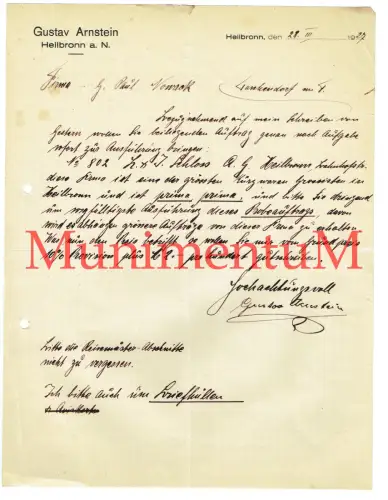 Gustav Arnstein
Heilbronn a. N.
Heilbronn, den 28. III. 1927
Firma G. Paul Nowack
Bezugnehmend auf mein Schreiben von
Gestern wollen Sie beiliegenden Auftrag genau nach Aufgabe
sofort zur Ausführung bringen:
N° 802 A. G. Heilbronn
diese Firma ist eine der grössten Grossisten in
Heilbronn und ist prima prima, und bitte Sie dringend
um sorgfältigste Ausführung dieses Probeauftrags, davon
wird es abhängen grössere Aufträge von dieser Firma zu erhalten
betrifft so wollen Sie mir
10% Provision plus gutschreiben
MunimentuM
Hochachtungsvoll
Gustav Arnstein
Bitte die Reisemuster-Abschnitte
nicht zu vergessen.
Ich bitte auch um Briefhüllen